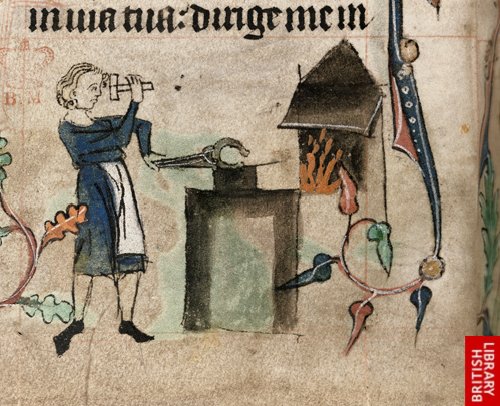 in uia tua: dirige me in
B M
BRITISH
LIBRARY